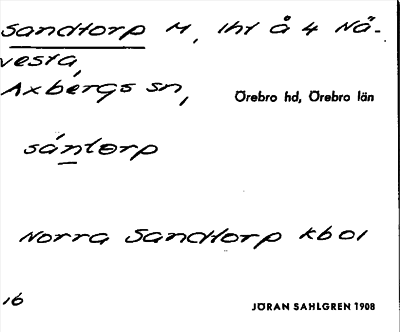 Sandtorp M, lht å 4 Nä-
vesta,
Axbergs sn,
Örebro hd, Örebro län
sántorp
Norra Sandtorp kb 01
16
JÖRAN SAHLGREN 1908